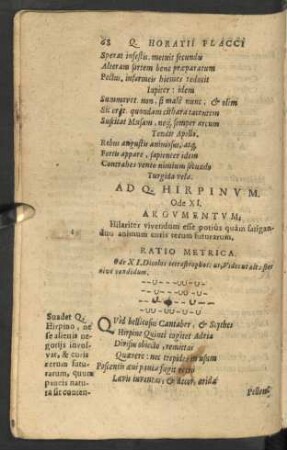 68 Q. HORATII FLACCI
Sperat infestis, metuit secundis
Alteram sortem bene præparatum
Pectus, informeis hiemes reducit
Iupiter: idem
Summovet. non, si malè nunc, & olim
Sic erit. quondam cithara tacentem
Suscitat Musam, neq; semper arcum
Tendit Apollo.
Rebus angustis animosus, atq;
Fortis appare, sapienter idem
Contrahes vento nimium secundo
Turgida vela.
AD Q. HIRPINVM.
Ode XI.
ARGVMENTVM,
Hilariter vivendum esse potiùs quàm fatigan-
dum animum curis rerum futurarum.
RATIO METRICA.
Ode XI. Dicolos tetrastrophos: ut, Vides ut alta stet
nive candidum.
Suadet Q.
Hirpino, ne
se alienis ne-
gotijs invol-
vat, & curis
rerum futu-
rarum, quum
paucis natu-
ra sit conten-
QVid bellicosus Cantaber, & Scythes
Hirpine Quinti cogitet Adria
Divisus obiecto, remittas
Quærere: nec trepides in usum
Poscentis ævi pauca: fugit retro
Levis iuventas, & decor, arida
Pellente